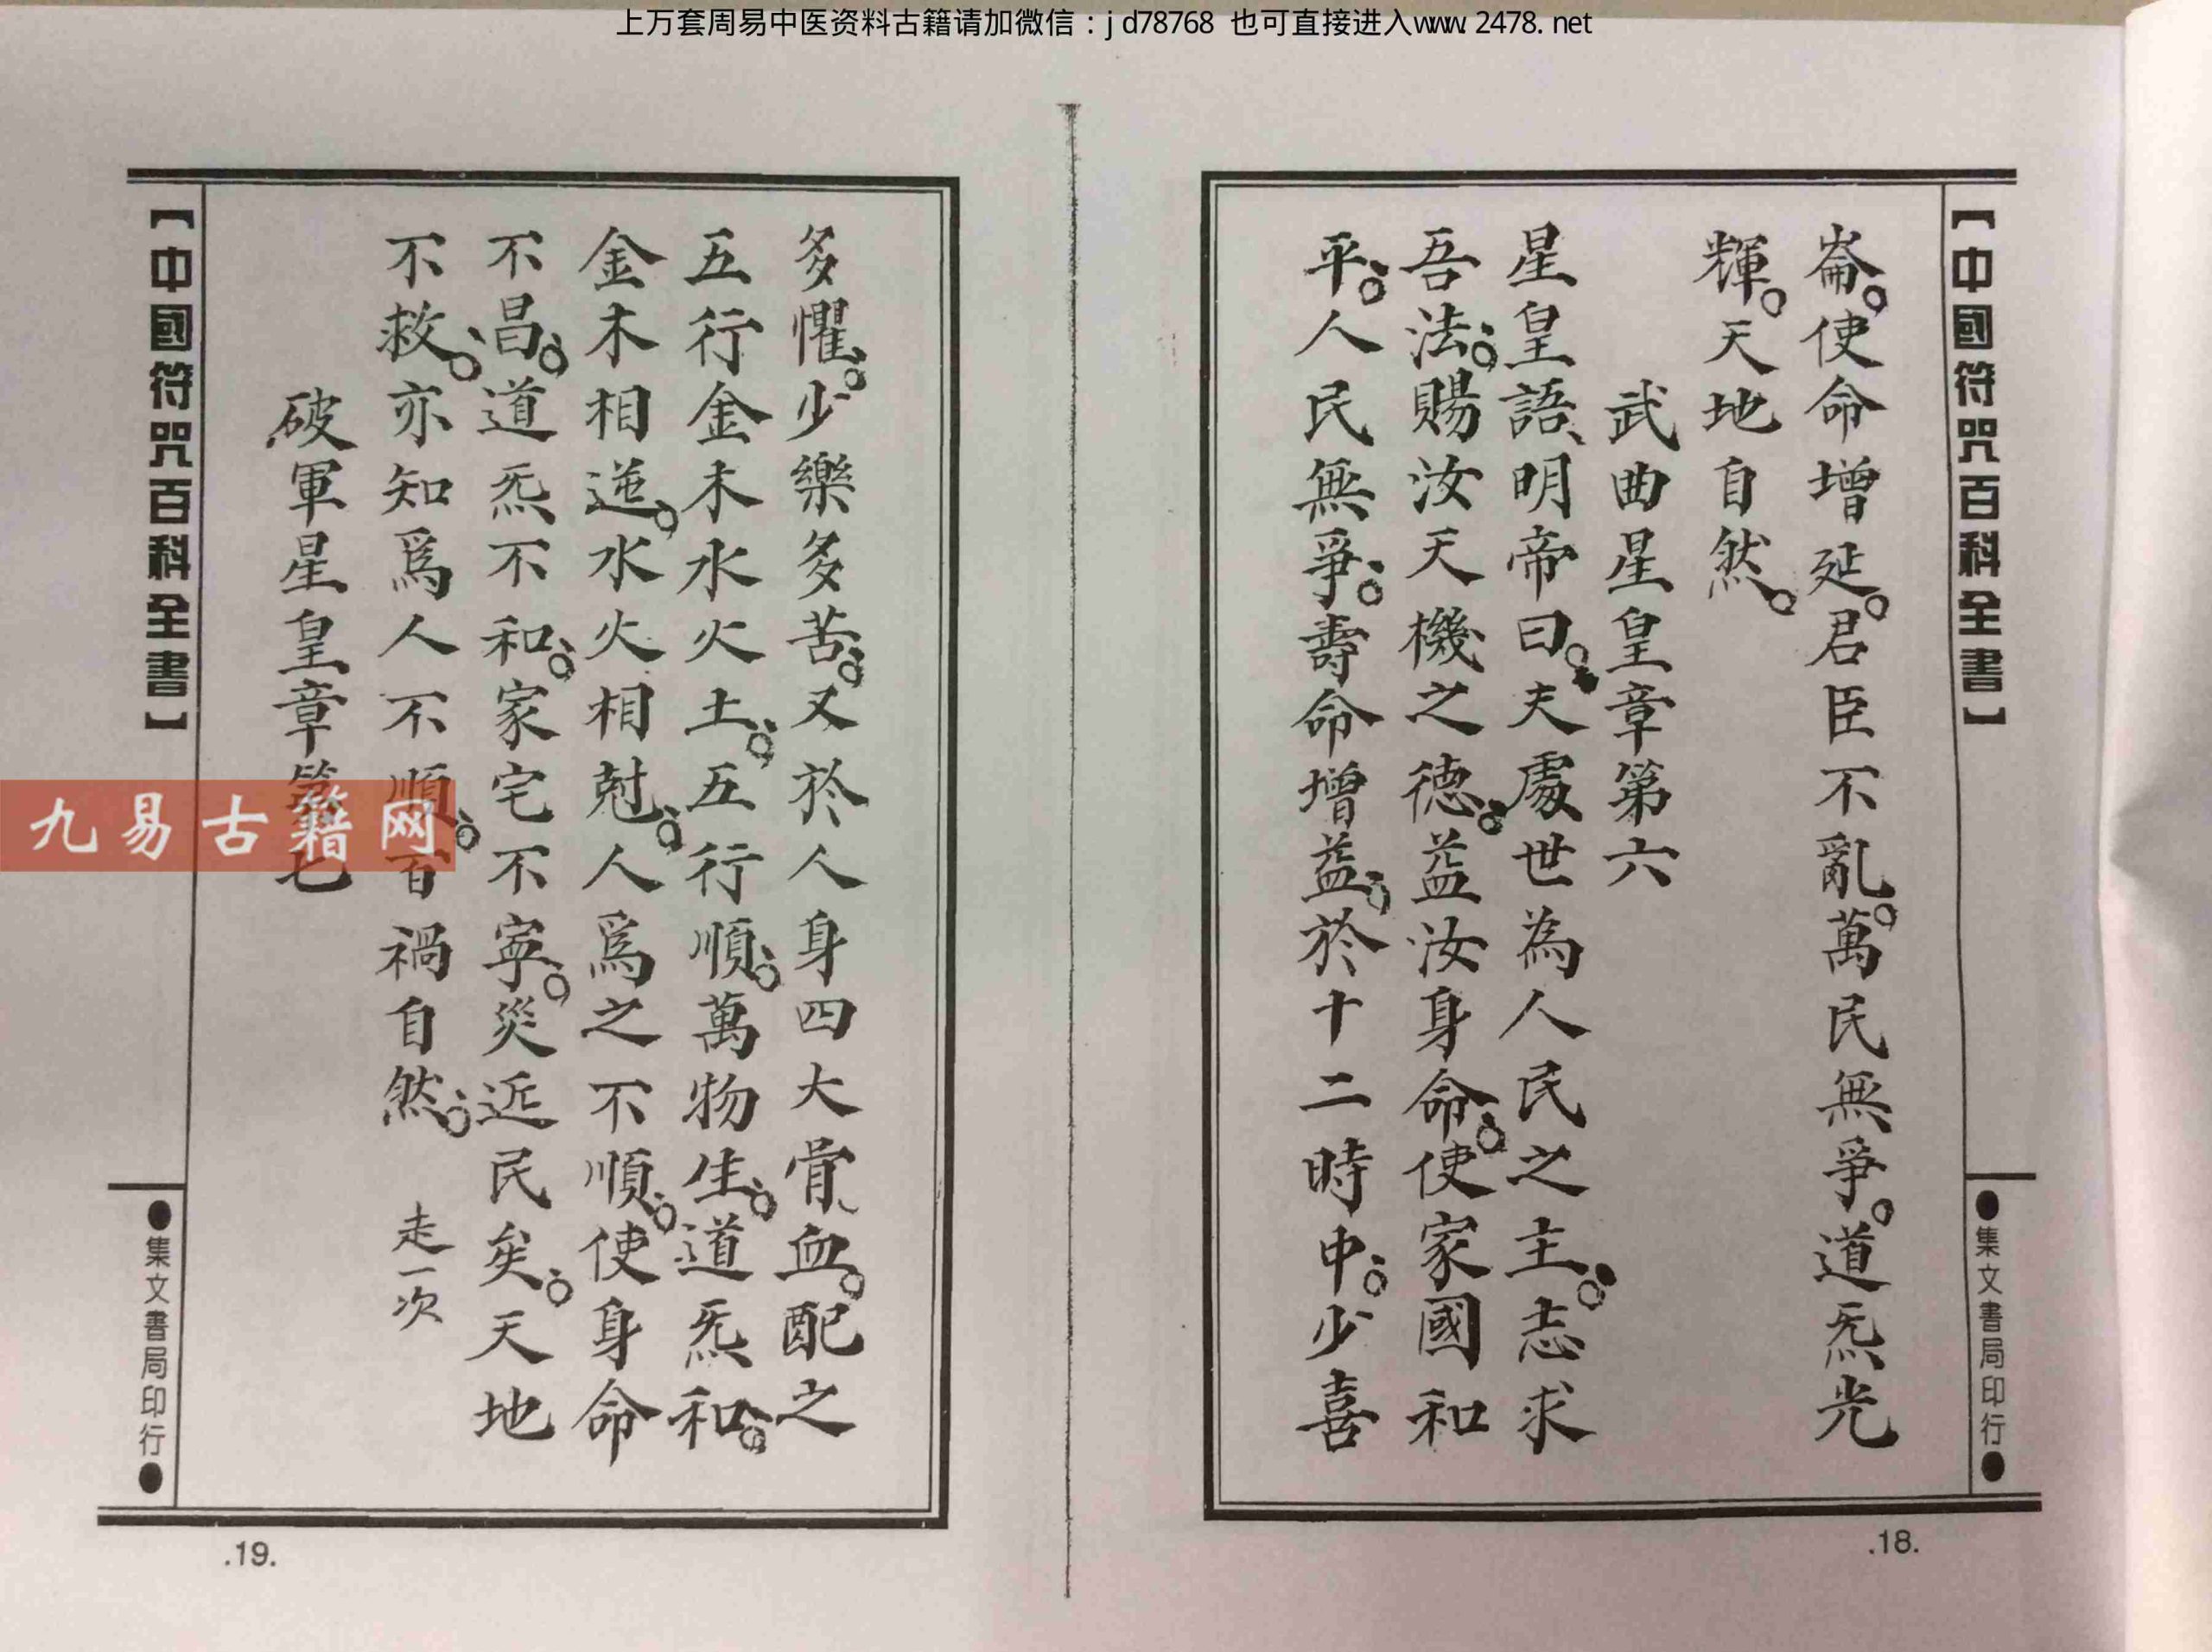 上万套周易中医资料古籍请加微信：jd78768 也可直接进入www.2478.net
【中國符咒百科全書】
●集文書局印行●
崙。使命增延。君臣不亂。萬民無爭。道炁光
輝。天地自然。
武曲星皇章第六
星皇語、明帝曰。夫處世為人民之主。志求
吾法。賜汝天機之德。益汝身命。使家國和
平。人民無爭。壽命增益。於十二時中。少喜
.18.
多懼。少樂多苦。又於人身四大骨血。配之
五行金木水火土。五行順。萬物生。道炁和。
金木相逆。水火相尅。人爲之不順。使身命
不昌。道炁不和。家宅不寧。災近民矣。天地
不救。亦知爲人不順。百禍自然。 走一次
破軍星皇章第七
【中國符咒百科全書】
●集文書局印行●
.19.
九易古籍网